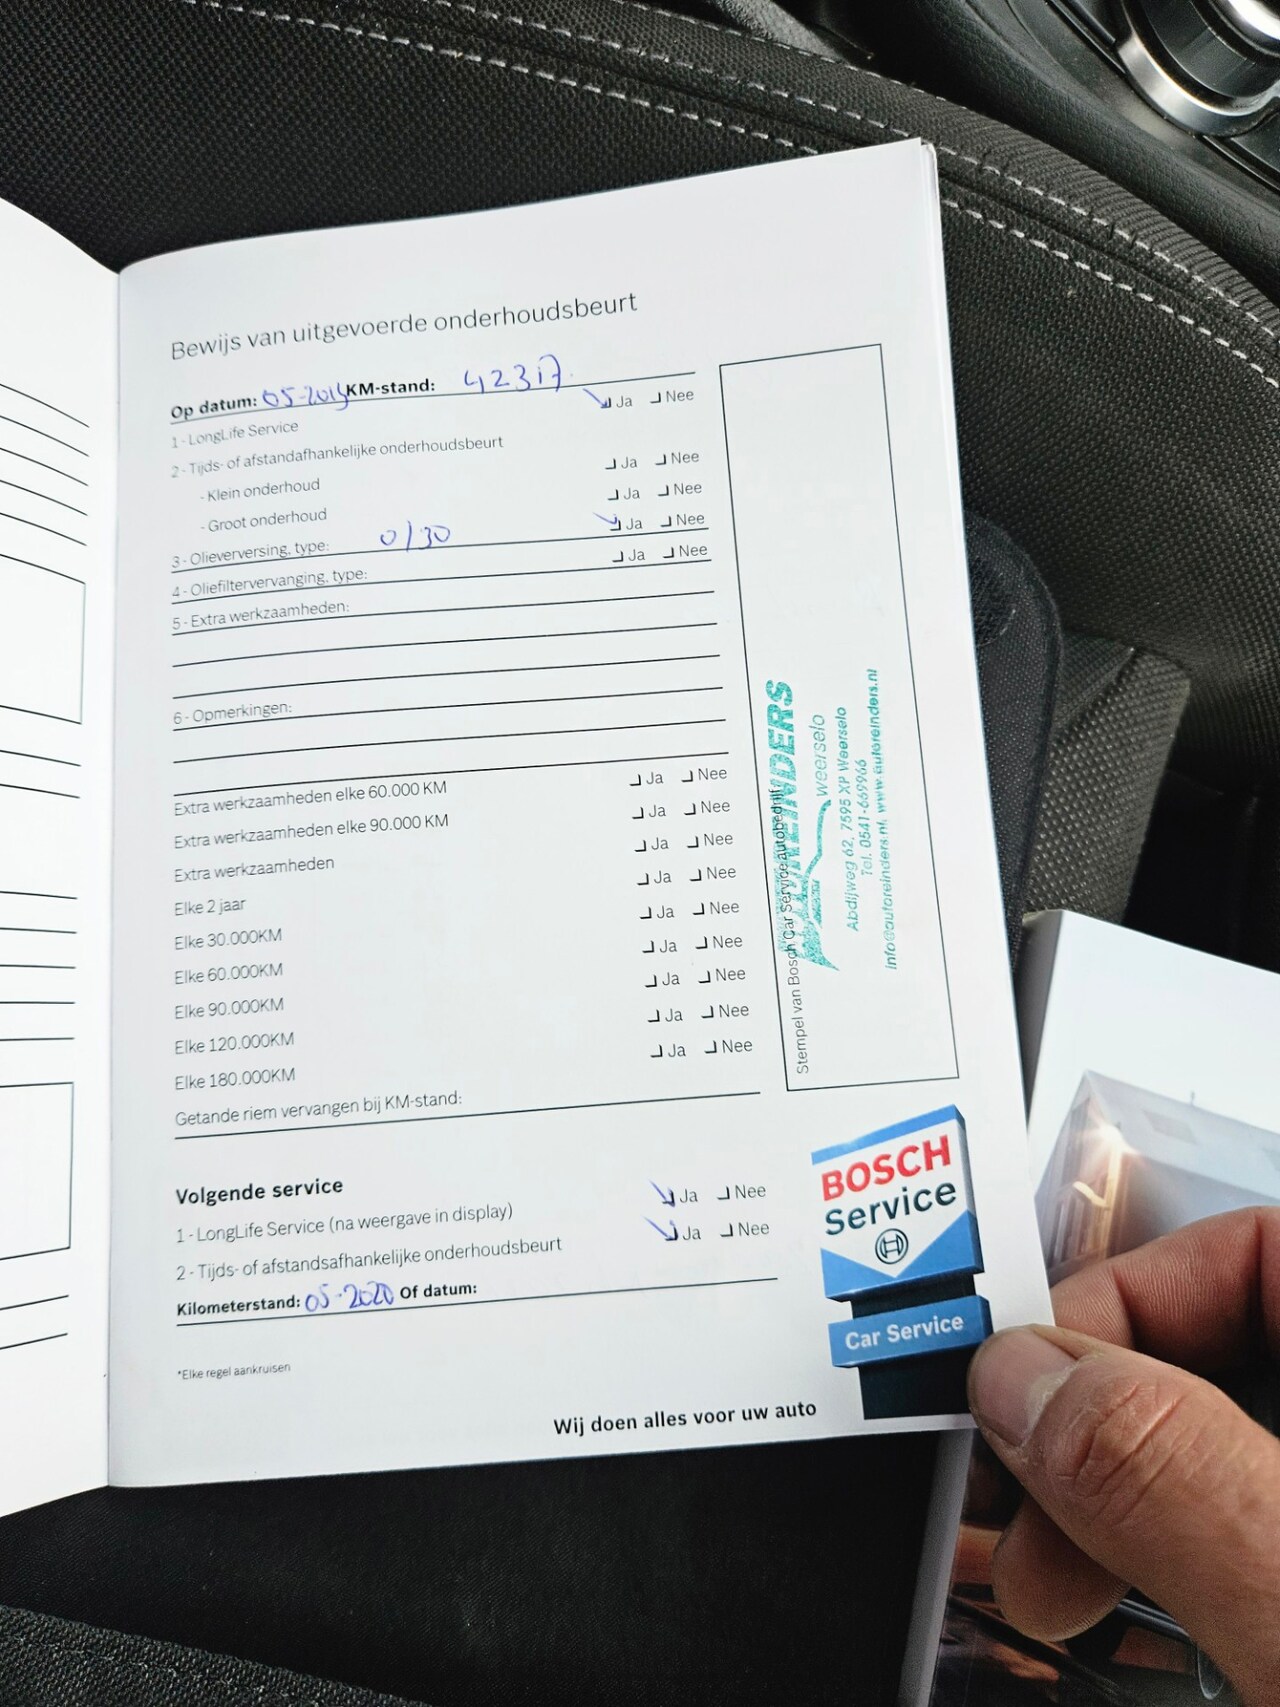 Bewijs van uitgevoerde onderhoudsbeurt
Op datum: 05-2019 KM-stand: 42317
1 - LongLife Service Ja Nee
2 - Tijds- of afstandafhankelijke onderhoudsbeurt
- Klein onderhoud Ja Nee
- Groot onderhoud Ja Nee
3 - Olieverversing, type: 0/30 Ja Nee
4 - Oliefiltervervanging, type: Ja Nee
5 - Extra werkzaamheden:
6 - Opmerkingen:
Extra werkzaamheden elke 60.000 KM Ja Nee
Extra werkzaamheden elke 90.000 KM Ja Nee
Extra werkzaamheden Ja Nee
Elke 2 jaar Ja Nee
Elke 30.000KM Ja Nee
Elke 60.000KM Ja Nee
Elke 90.000KM Ja Nee
Elke 120.000KM Ja Nee
Elke 180.000KM Ja Nee
Getande riem vervangen bij KM-stand:
Stempel van Bosch Car Service autobedrijf
REINDERS
weerselo
Abdijweg 62, 7595 XP Weerselo
Tel. 0541-669966
info@autoreinders.nl, www.autoreinders.nl
Volgende service
1 - LongLife Service (na weergave in display) Ja Nee
2 - Tijds- of afstandsafhankelijke onderhoudsbeurt Ja Nee
Kilometerstand: 05-2020 Of datum:
*Elke regel aankruisen
BOSCH
Service
Car Service
Wij doen alles voor uw auto